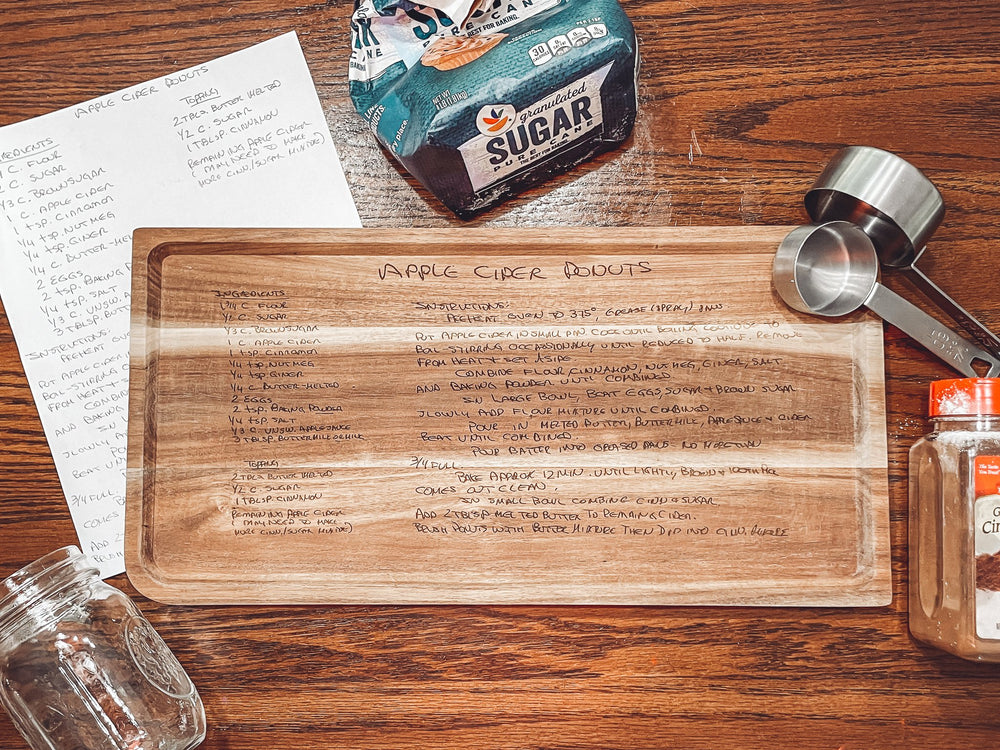 APPLE CIDER DONUTS
TOPPING
2 TBLS. BUTTER MELTED
1/2 C. SUGAR
1 TBLSP. CINNAMON
REMAINING APPLE CIDER
( MAY NEED TO MAKE
MORE CINN/SUGAR MIXTURE)
C. FLOUR
C. SUGAR
1/3 C. BROWN SUGAR
1 C. APPLE CIDER
1 tSP. CINNAMON
1/4 tSP. NUTMEG
1/4 tSP. GINGER
1/4 C. BUTTER-MEL
2 EGGS
2 tSP. BAKING P
1/4 tSP. SALT
1/3 C. UNSW. A
3 TBLSP. BUTT
INSTRUCTIONS:
PREHEAT
PUT APPLE CIDER I
BOIL STIRRING
FROM HEAT +
COMBIN
AND BAKING
IN
SLOWLY AD
BEAT UN
3/4 FULL.
COMES
AND 2
BRUSH
PURE CANE
BEST FOR BAKING.
NET WT
granulated
SUGAR
PURE CANE
THE BEST FOR BAKING.
APPLE CIDER DONUTS
INGREDIENTS
1 3/4 C. FLOUR
1/2 C. SUGAR
1/3 C. BROWN SUGAR
1 C. APPLE CIDER
1 tSP. CINNAMON
1/4 tSP. NUTMEG
1/4 tSP GINGER
1/4 C. BUTTER-MELTED
2 EGGS
2 tSP. BAKING POWDER
1/4 tSP. SALT
1/3 C. UNSW. APPLESAUCE
3 TBLSP. BUTTERMILK
TOPPING
2 TBLS BUTTER MELTED
1/2 C. SUGAR
1 TBLSP. CINNAMON
REMAINING APPLE CIDER
( MAY NEED TO MAKE
MORE CINN/SUGAR MIXTURE)
INSTRUCTIONS:
PREHEAT OVEN TO 375°, GREASE (SPRAY) PANS
PUT APPLE CIDER IN SMALL PAN. COOK UNTIL BOILING CONTINUE TO
BOIL STIRRING OCCASIONALLY UNTIL REDUCED TO HALF. REMOVE
FROM HEAT + SET ASIDE.
COMBINE FLOUR, CINNAMON, NUTMEG, GINGER, SALT
AND BAKING POWDER UNTIL COMBINED
IN LARGE BOWL, BEAT EGGS, SUGAR + BROWN SUGAR
SLOWLY ADD FLOUR MIXTURE UNTIL COMBINED.
POUR IN MELTED BUTTER, BUTTERMILK, APPLESAUCE + CIDER
BEAT UNTIL COMBINED.
POUR BATTER INTO GREASED PANS NO MORE THAN
3/4 FULL.
BAKE APPROX. 12 MIN. UNTIL LIGHTLY BROWN + TOOTH PICK
COMES OUT CLEAN.
IN SMALL BOWL COMBINE CINN + SUGAR
AND 2 TBLSP MELTED BUTTER TO REMAIN CIDER.
BRUSH DONUTS WITH BUTTER MIXTURE THEN DIP INTO CINN.